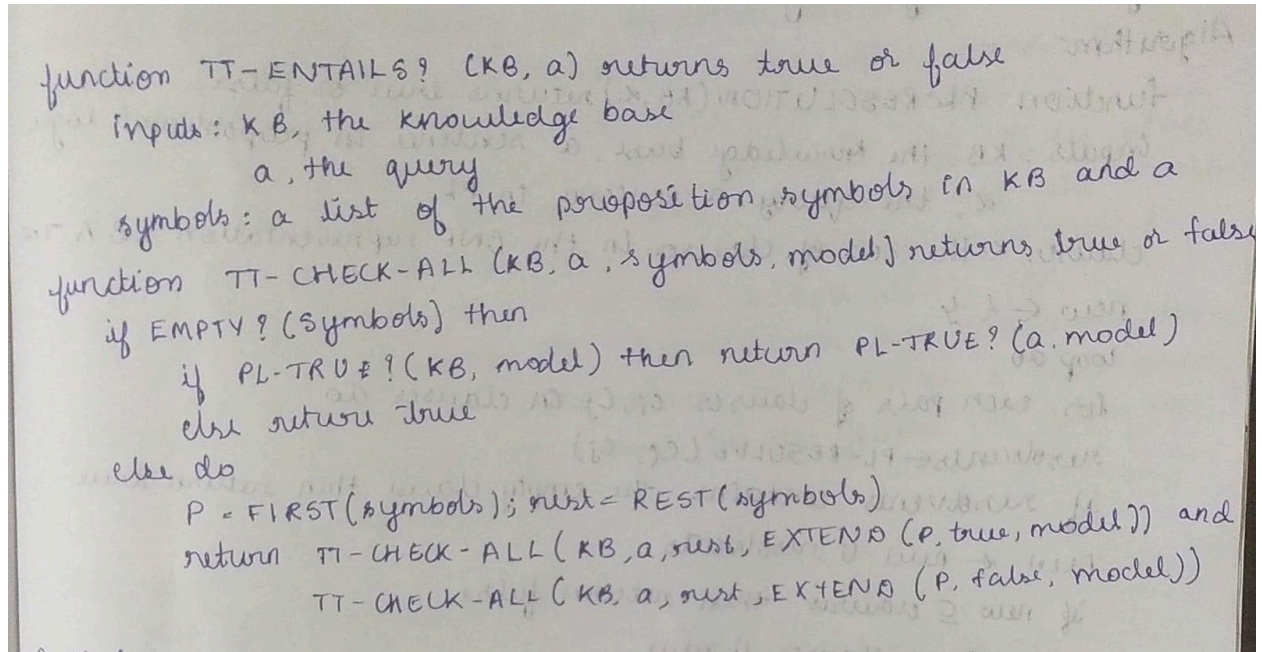 function TT-ENTAILS? (KB, a) returns true or false
inputs: KB, the knowledge base
a, the query
symbols: a list of the proposition symbols in KB and a
function TT-CHECK-ALL (KB, a, symbols, model) returns true or false
if EMPTY? (symbols) then
if PL-TRUE? (KB, model) then return PL-TRUE? (a, model)
else return true
else do
P = FIRST(symbols); rest = REST(symbols)
return TT-CHECK-ALL (KB, a, rest, EXTEND (P, true, model)) and
TT-CHECK-ALL (KB, a, rest, EXTEND (P, false, model))